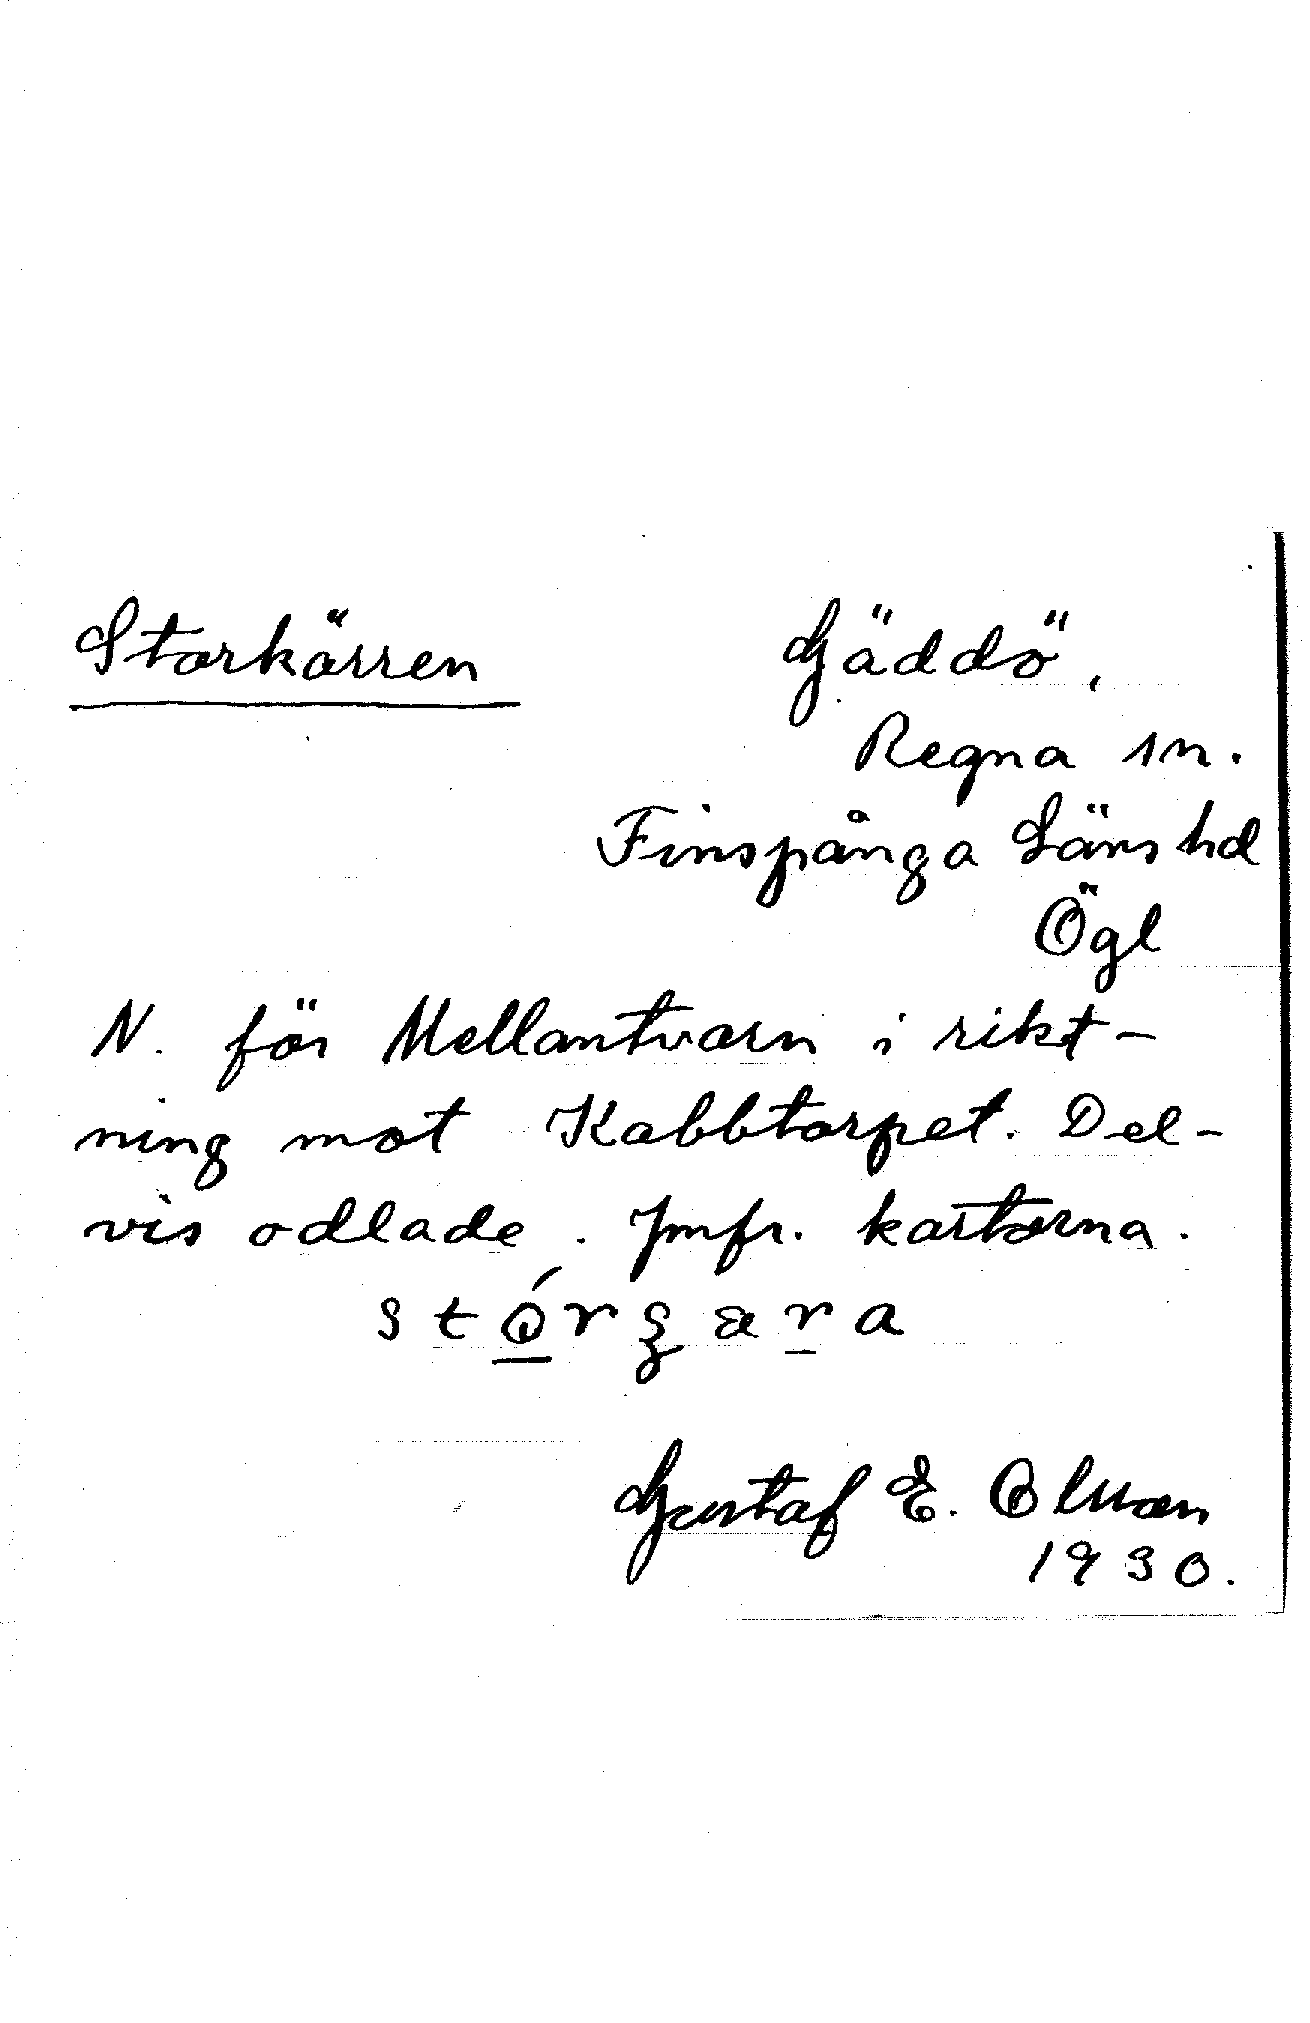 Storkärren
Gäddö,
Regna sn.
Finspånga Läns hd
Ögl
N. för Mellantvarn i rikt-
ning mot Kabbtorpet. Del-
vis odlade. Jmfr. kartorna.
Gustaf E. Olsson
1930.